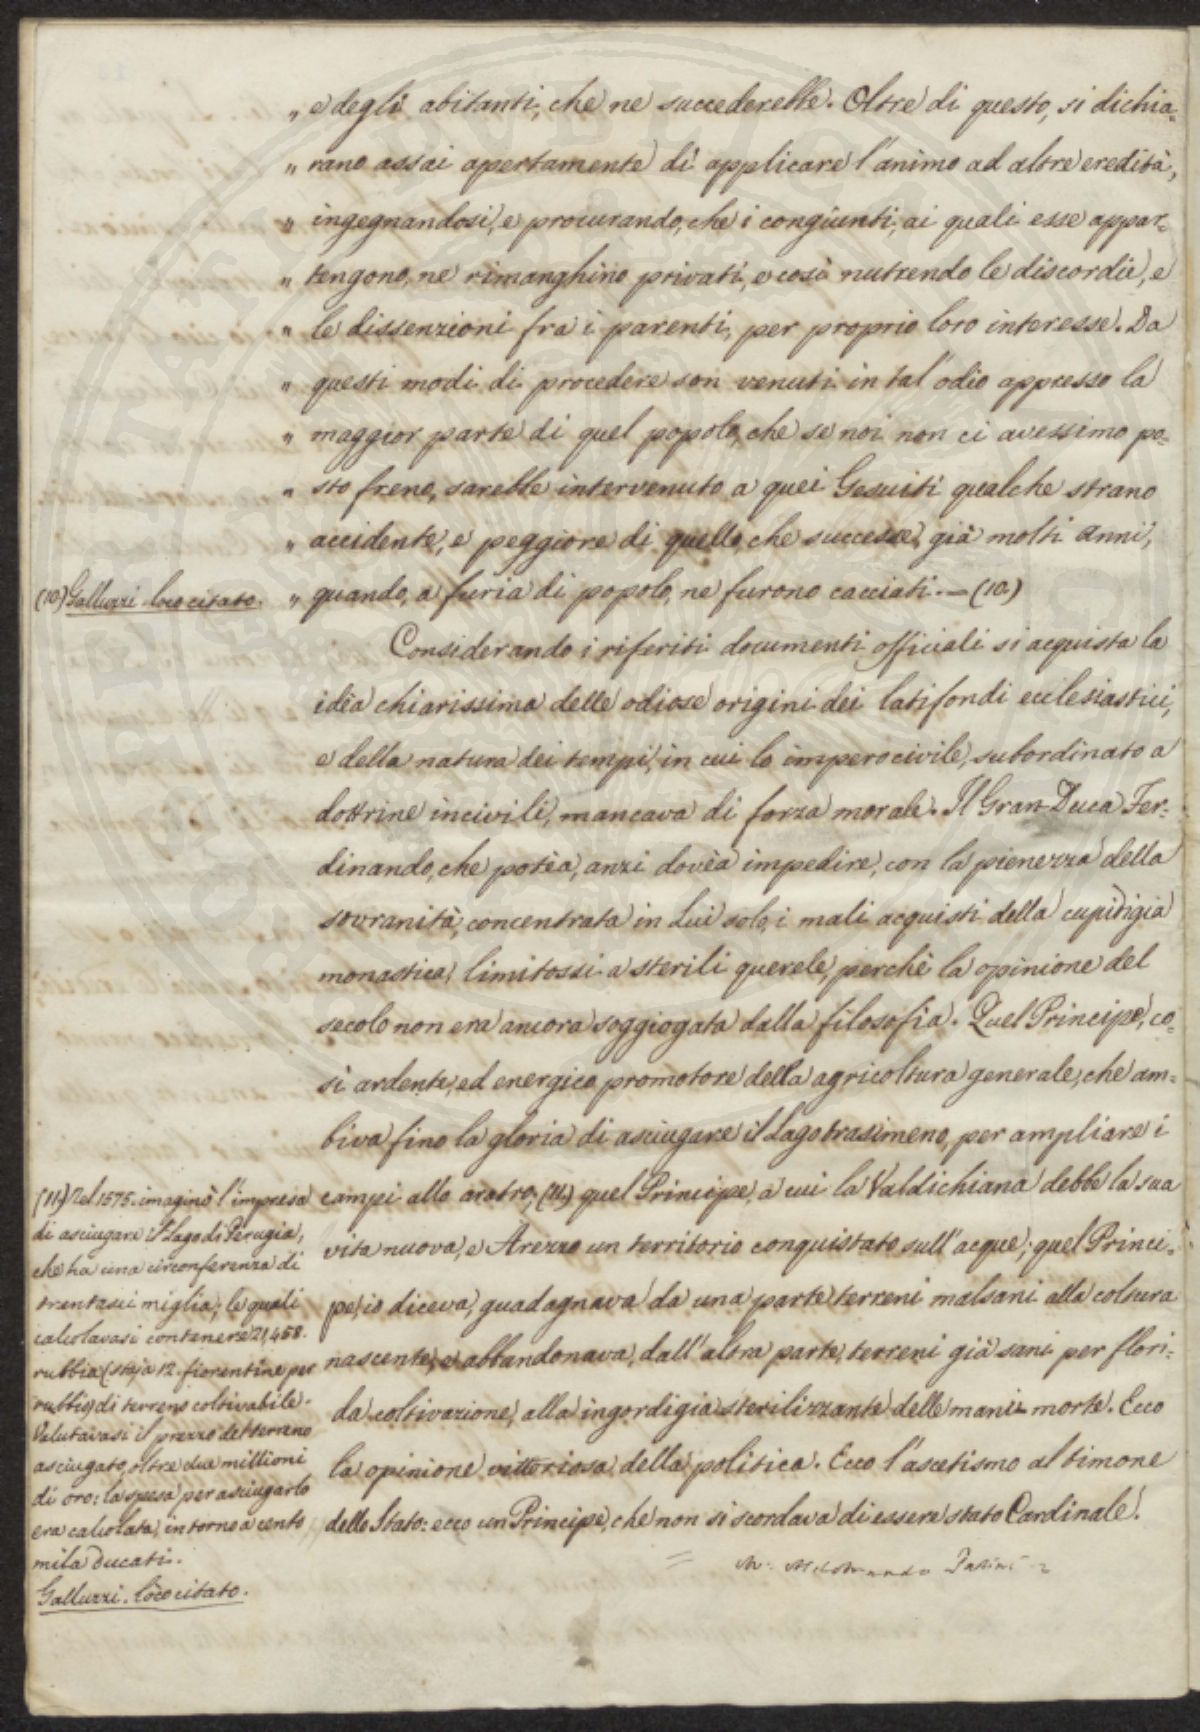 „ e degli abitanti, che ne succederebbe. Oltre di questo, si dichia=
„ rano assai apertamente di applicare l'animo ad altre eredità,
„ ingegnandosi, e procurando, che i congiunti, ai quali esse appar=
„ tengono, ne rimanghino privati, e così nutrendo le discordie, e
„ le dissenzioni fra i parenti, per proprio loro interesse. Da
„ questi modi di procedere son venuti in tal'odio appresso la
„ maggior parte di quel popolo, che se noi non ci avessimo po=
„ sto freno, sarebbe intervenuto a quei Gesuiti qualche strano
„ accidente, e peggiore di quello, che successe, già molti anni,
„ quando, a furia di popolo, ne furono cacciati. — (10.)
(10.) Galluzzi loco citato.
Considerando i riferiti documenti officiali si acquista la
idèa chiarissima delle odiose origini dei latifondi ecclesiastici,
e della natura dei tempi, in cui lo impero civile, subordinato a
dottrine incivili, mancava di forza morale. Il Gran-Duca Fer=
dinando, che potèa, anzi dovèa impedire, con la pienezza della
sovranità, concentrata in Lui solo, i mali acquisti della cupidigia
monastica, limitossi a sterili querele, perchè la opinione del
secolo non era ancora soggiogata dalla filosofia. Quel Principe, co=
sì ardente, ed energico promotore della agricoltura generale, che am=
biva fino la gloria di asciugare il Lago trasimeno, per ampliare i
campi allo aratro, (11.) quel Principe, a cui la Valdichiana debbe la sua
vita nuova, e Arezzo un territorio conquistato sull'acque; quel Princi=
pe, io diceva, guadagnava da una parte, terreni malsani alla coltura
nascente, e abbandonava, dall'altra parte, terreni già sani per flori=
da coltivazione, alla ingordigia sterilizzante delle mani-morte. Ecco
la opinione vittoriosa della politica. Ecco l'ascetismo al timone
dello Stato: ecco un Principe, che non si scordava di essere stato Cardinale.
(11.) Nel 1575. imaginò l'impresa
di asciugare il Lago di Perugia,
che ha una circonferenza di
trentasei miglia; le quali
calcolavasi contenere 21,458.
rubbia (staja 12. fiorentine per
rubbio) di terreno coltivabile.
Valutavasi il prezzo del terreno
asciugato, oltre due millioni
di oro: la spesa per asciugarlo
era calcolata, intorno a cento
mila Ducati.
Galluzzi. lòco citato.